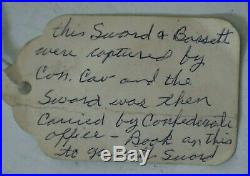 this Sword & Bassett
were captured by
Con. Cav and the
Sword was then
carried by Confederate
office - Book on this
to go with Sword